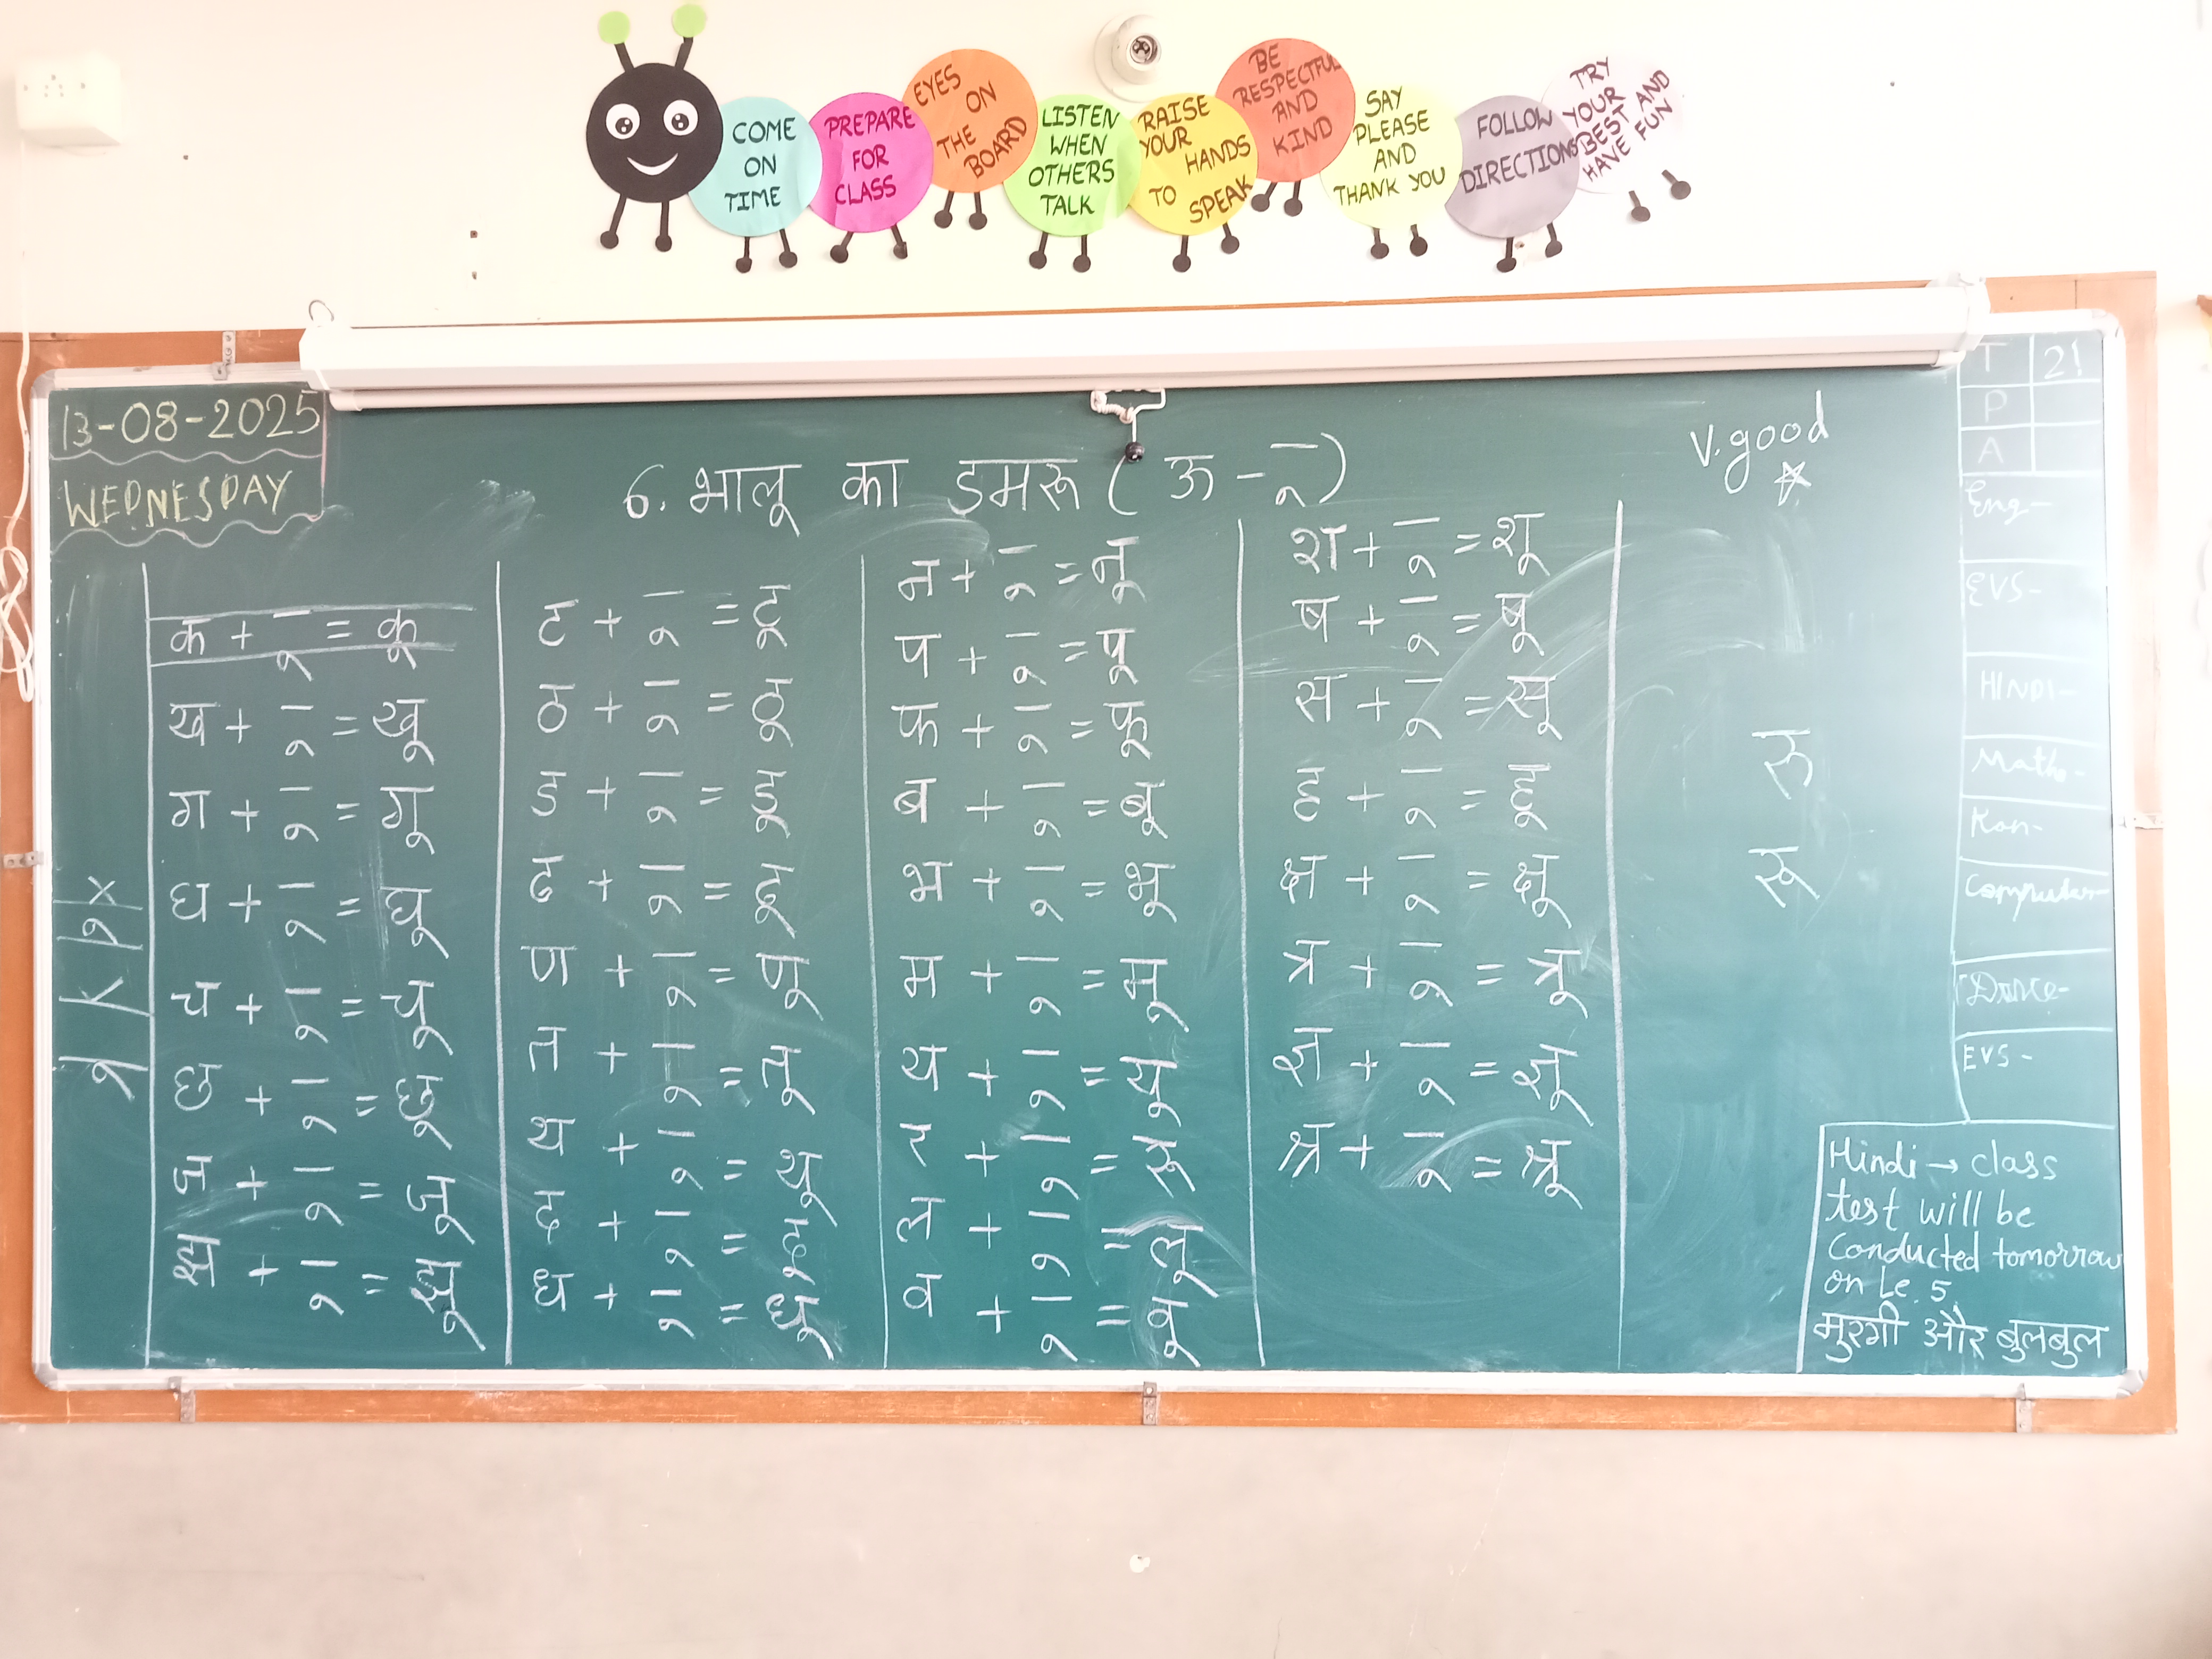 COME ON TIME
PREPARE FOR CLASS
EYES ON THE BOARD
LISTEN WHEN OTHERS TALK
RAISE YOUR HANDS TO SPEAK
BE RESPECTFUL AND KIND
SAY PLEASE AND THANK YOU
FOLLOW DIRECTIONS
TRY YOUR BEST AND HAVE FUN
13-08-2025
WEDNESDAY
6. भालू का डमरू ( ऊ - ू )
V. good
क + ू = कू
ख + ू = खू
ग + ू = गू
घ + ू = घू
च + ू = चू
छ + ू = छू
ज + ू = जू
झ + ू = झू
ट + ू = टू
ठ + ू = ठू
ड + ू = डू
ढ + ू = ढू
ण + ू = णू
त + ू = तू
थ + ू = थू
द + ू = दू
ध + ू = धू
न + ू = नू
प + ू = पू
फ + ू = फू
ब + ू = बू
भ + ू = भू
म + ू = मू
य + ू = यू
र + ू = रू
ल + ू = लू
व + ू = वू
श + ू = शू
ष + ू = षू
स + ू = सू
ह + ू = हू
क्ष + ू = क्षू
त्र + ू = त्रू
ज्ञ + ू = ज्ञू
श्र + ू = श्रू
रु
रू
T 21
P
A
Eng-
EVS-
HINDI-
Maths-
Kan-
Computer-
Dance-
EVS-
Hindi → class
test will be
conducted tomorrow
on Le. 5
मुरगी और बुलबुल